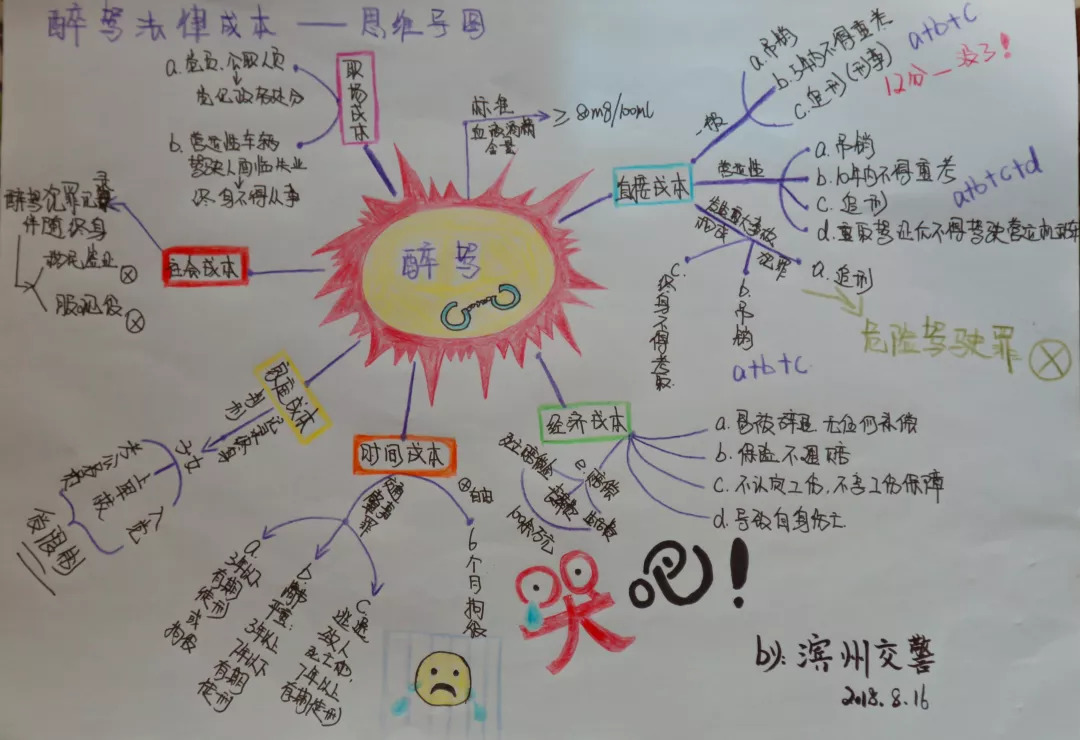 醉驾法律成本 —— 思维导图
职场成本
a. 党员、公职人员
党纪政务处分
b. 营运性车辆
驾驶人面临失业
终身不得从事
标准
血液酒精
含量
≥ 80mg/100ml
醉驾
直接成本
一般
a. 吊销
b. 5年内不得重考
c. 追刑(刑事)
a+b+c
12分一没了!
营运性
a. 吊销
b. 10年内不得重考
c. 追刑
d. 重取驾证后不得驾驶营运机动车
a+b+c+d
发生重大事故
构成
犯罪
a. 追刑
b. 吊销
c. 终身不得考取
a+b+c
危险驾驶罪
社会成本
醉驾犯罪记录
伴随终身
移民签证
服兵役
家庭成本
判刑
记录终身
子女
考公务员
上军校
入党
受限制
时间成本
交通肇事罪
a. 3年以下有期徒刑或拘役
b. 情节严重:3年以上7年以下有期徒刑
c. 逃逸致人死亡的,7年以上有期徒刑
自由
6个月拘役
经济成本
a. 易被辞退 无任何补偿
b. 保险不理赔
c. 不认定工伤,不享工伤保障
d. 导致自身伤亡
e. 赔偿
死亡赔偿金
生活费
100余万元
哭吧!
by: 滨州交警
2018.8.16